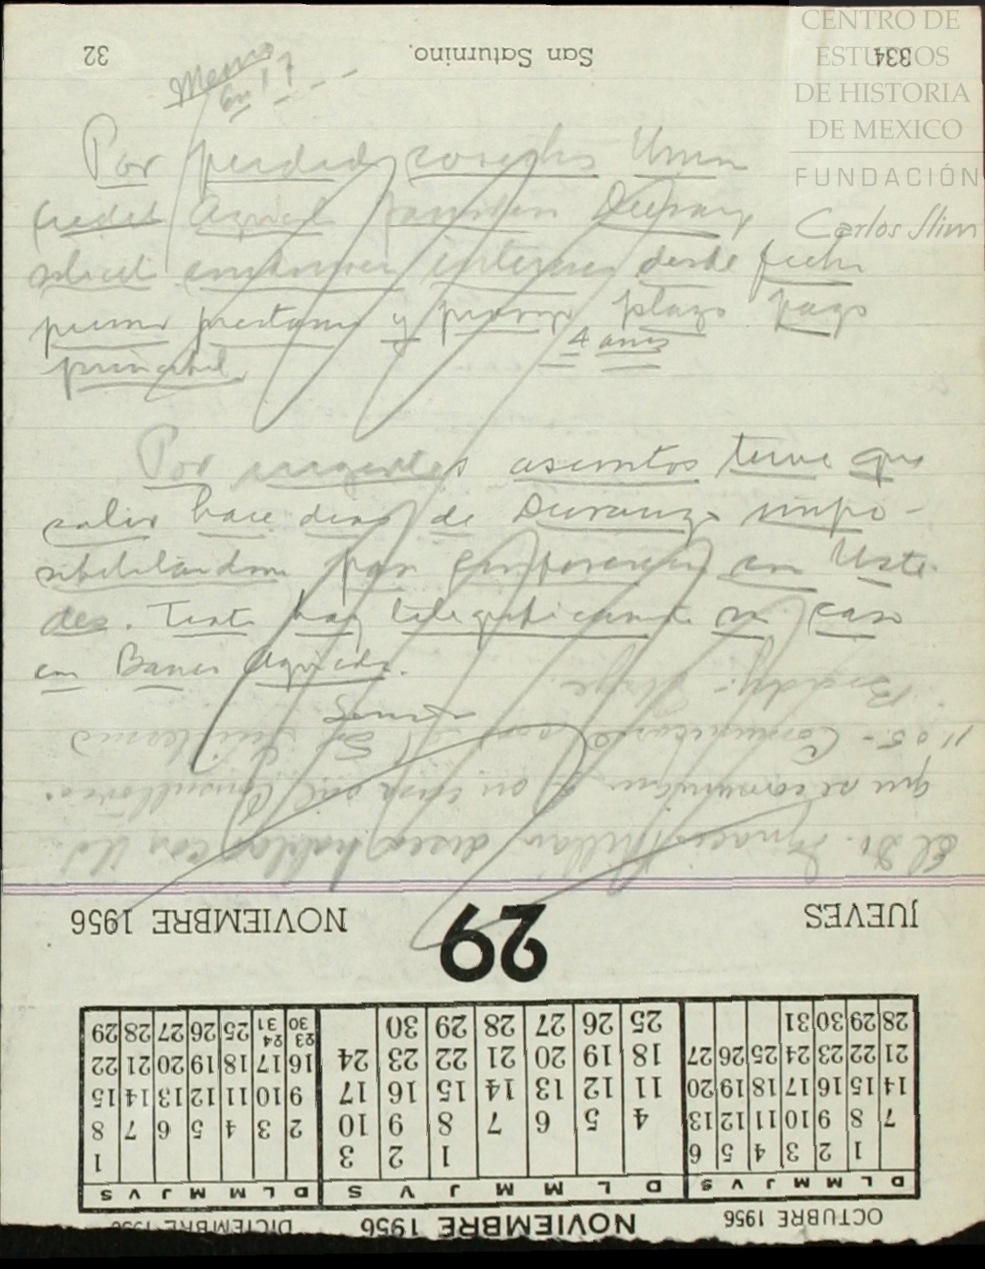 CENTRO DE
ESTUDIOS
DE HISTORIA
DE MEXICO
FUNDACIÓN
Carlos Slim
334
San Saturnino.
32
En 17
Por perdad cosechas Union
credit Agricol Durang
solicit intereses desde fecha
primer prestamo y plazo pago
4 años
principal
Por urgentes asuntos tuve que
salir hace dias de Durango impo-
sibilitandome conferenciar con Uste-
des. Trate hoy telegraficamente su caso
en Banco Agricola.
El Dr. Ignacio Millan desea hablar con Ud.
que se comunique a su casa o al Consultorio.
11.05 - Comunicarse con el Sr. Guillermo
JUEVES
29
NOVIEMBRE 1956
OCTUBRE 1956
D L M M J V S
1 2 3 4 5 6
7 8 9 10 11 12 13
14 15 16 17 18 19 20
21 22 23 24 25 26 27
28 29 30 31
NOVIEMBRE 1956
D L M M J V S
1 2 3
4 5 6 7 8 9 10
11 12 13 14 15 16 17
18 19 20 21 22 23 24
25 26 27 28 29 30
DICIEMBRE 1956
D L M M J V S
1
2 3 4 5 6 7 8
9 10 11 12 13 14 15
16 17 18 19 20 21 22
23 24 25 26 27 28 29
30 31